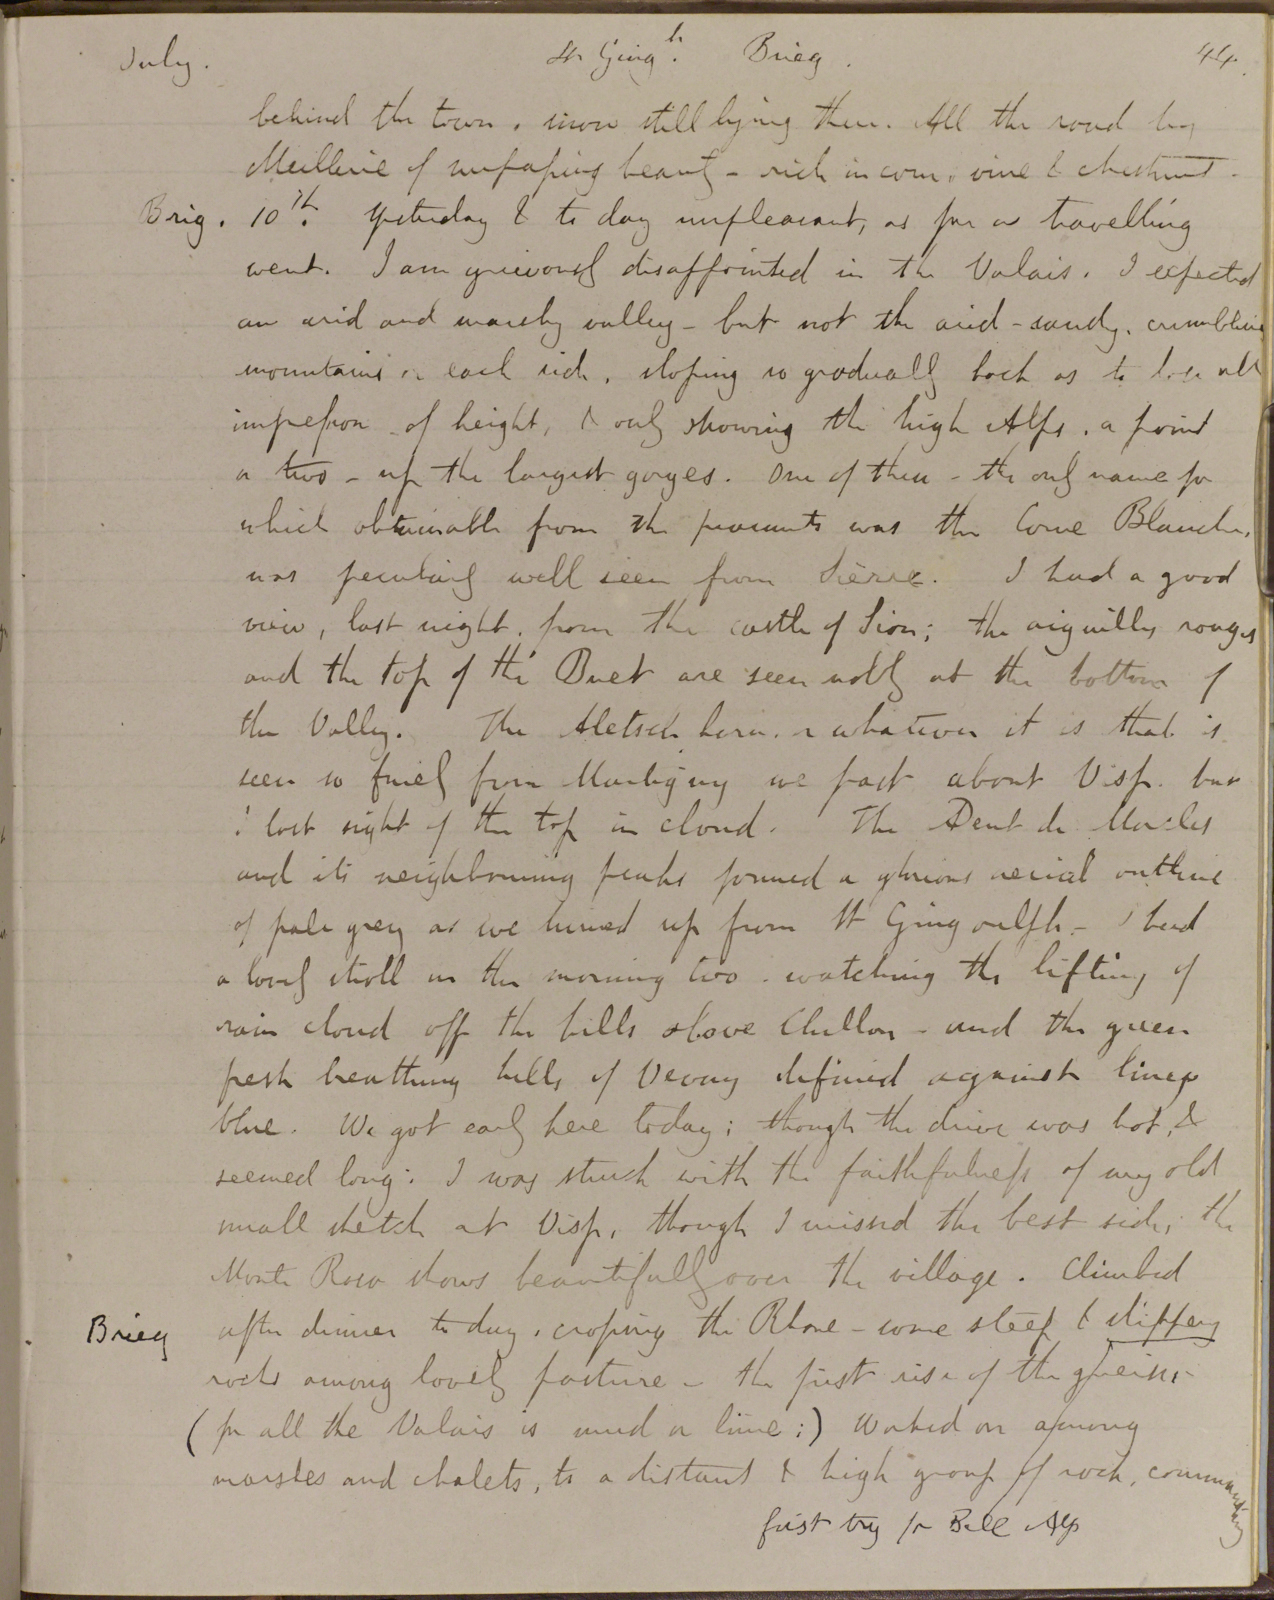 July. St Gingh. Brieg. 44.
behind the town, snow still lying there. All the road by
Meillerie of surpassing beauty - rich in corn, vine & chestnut -
Brig. 10th. Yesterday & to day unpleasant, as far as travelling
went. I am grievously disappointed in the Valais. I expected
an arid and marshy valley - but not the arid - sandy, crumbling
mountains on each side, sloping so gradually back as to lose all
impression of height, & only showing the high Alps, a point
or two - up the largest gorges. One of these - the only name for
which obtainable from the peasants was the Corne Blanche,
was peculiarly well seen from Sierre. I had a good
view, last night, from the castle of Sion; the aiguilles rouges
and the top of the Buet are seen nobly at the bottom of
the Valley. The Aletsch horn, or whatever it is that is
seen so finely from Martigny we past about Visp. but
I lost sight of the top in cloud. The Dent de Morcles
and its neighbouring peaks formed a glorious aerial outline
of pale grey as we turned up from St Gingoulph - I had
a lovely stroll in the morning too - watching the lifting of
rain cloud off the hills above Chillon - and the green
fresh breathing hills of Vevay defined against
blue. We got early here today; though the drive was hot, &
seemed long: I was struck with the faithfulness of my old
small sketch at Visp, though I missed the best side; the
Monte Rosa shows beautifully over the village. Climbed
Brieg after dinner to day, crossing the Rhone - some steep & slippery
rocks among lovely pasture - the first rise of the gneiss -
(for all the Valais is mud or lime:) Walked on among
marshes and chalets, to a distant & high group of rock, commanding
first try for Bell Alp